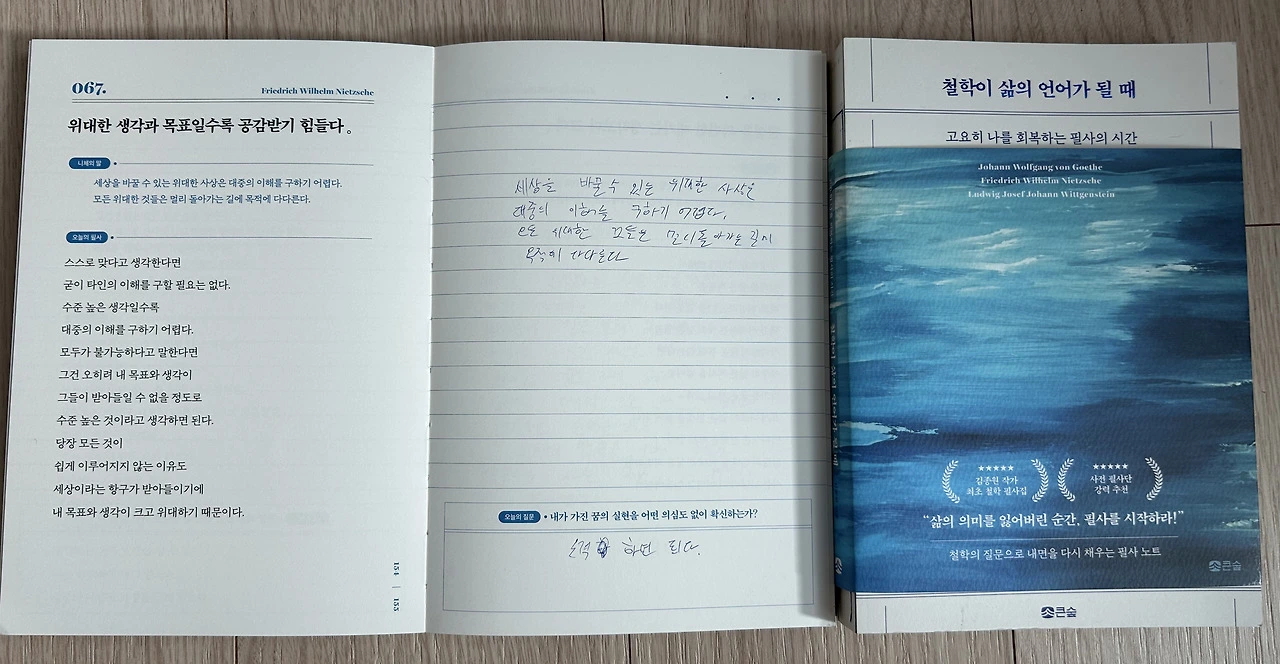 067.
Friedrich Wilhelm Nietzsche
위대한 생각과 목표일수록 공감받기 힘들다.
니체의 말
세상을 바꿀 수 있는 위대한 사상은 대중의 이해를 구하기 어렵다.
모든 위대한 것들은 멀리 돌아가는 길에 목적에 다다른다.
오늘의 필사
스스로 맞다고 생각한다면
굳이 타인의 이해를 구할 필요는 없다.
수준 높은 생각일수록
대중의 이해를 구하기 어렵다.
모두가 불가능하다고 말한다면
그건 오히려 내 목표와 생각이
그들이 받아들일 수 없을 정도로
수준 높은 것이라고 생각하면 된다.
당장 모든 것이
쉽게 이루어지지 않는 이유도
세상이라는 항구가 받아들이기에
내 목표와 생각이 크고 위대하기 때문이다.
154 | 155
세상을 바꿀 수 있는 위대한 사상은
대중의 이해를 구하기 어렵다.
모든 위대한 것들은 멀리 돌아가는 길에
목적에 다다른다
오늘의 질문 • 내가 가진 꿈의 실현을 어떤 의심도 없이 확신하는가?
하면 된다.
철학이 삶의 언어가 될 때
고요히 나를 회복하는 필사의 시간
Johann Wolfgang von Goethe
Friedrich Wilhelm Nietzsche
Ludwig Josef Johann Wittgenstein
철학이 삶의 언어가 될 때
★★★★★
김종원 작가
최초 철학 필사집
★★★★★
사전 필사단
강력 추천
“삶의 의미를 잃어버린 순간, 필사를 시작하라!”
철학의 질문으로 내면을 다시 채우는 필사 노트
큰숲
큰숲